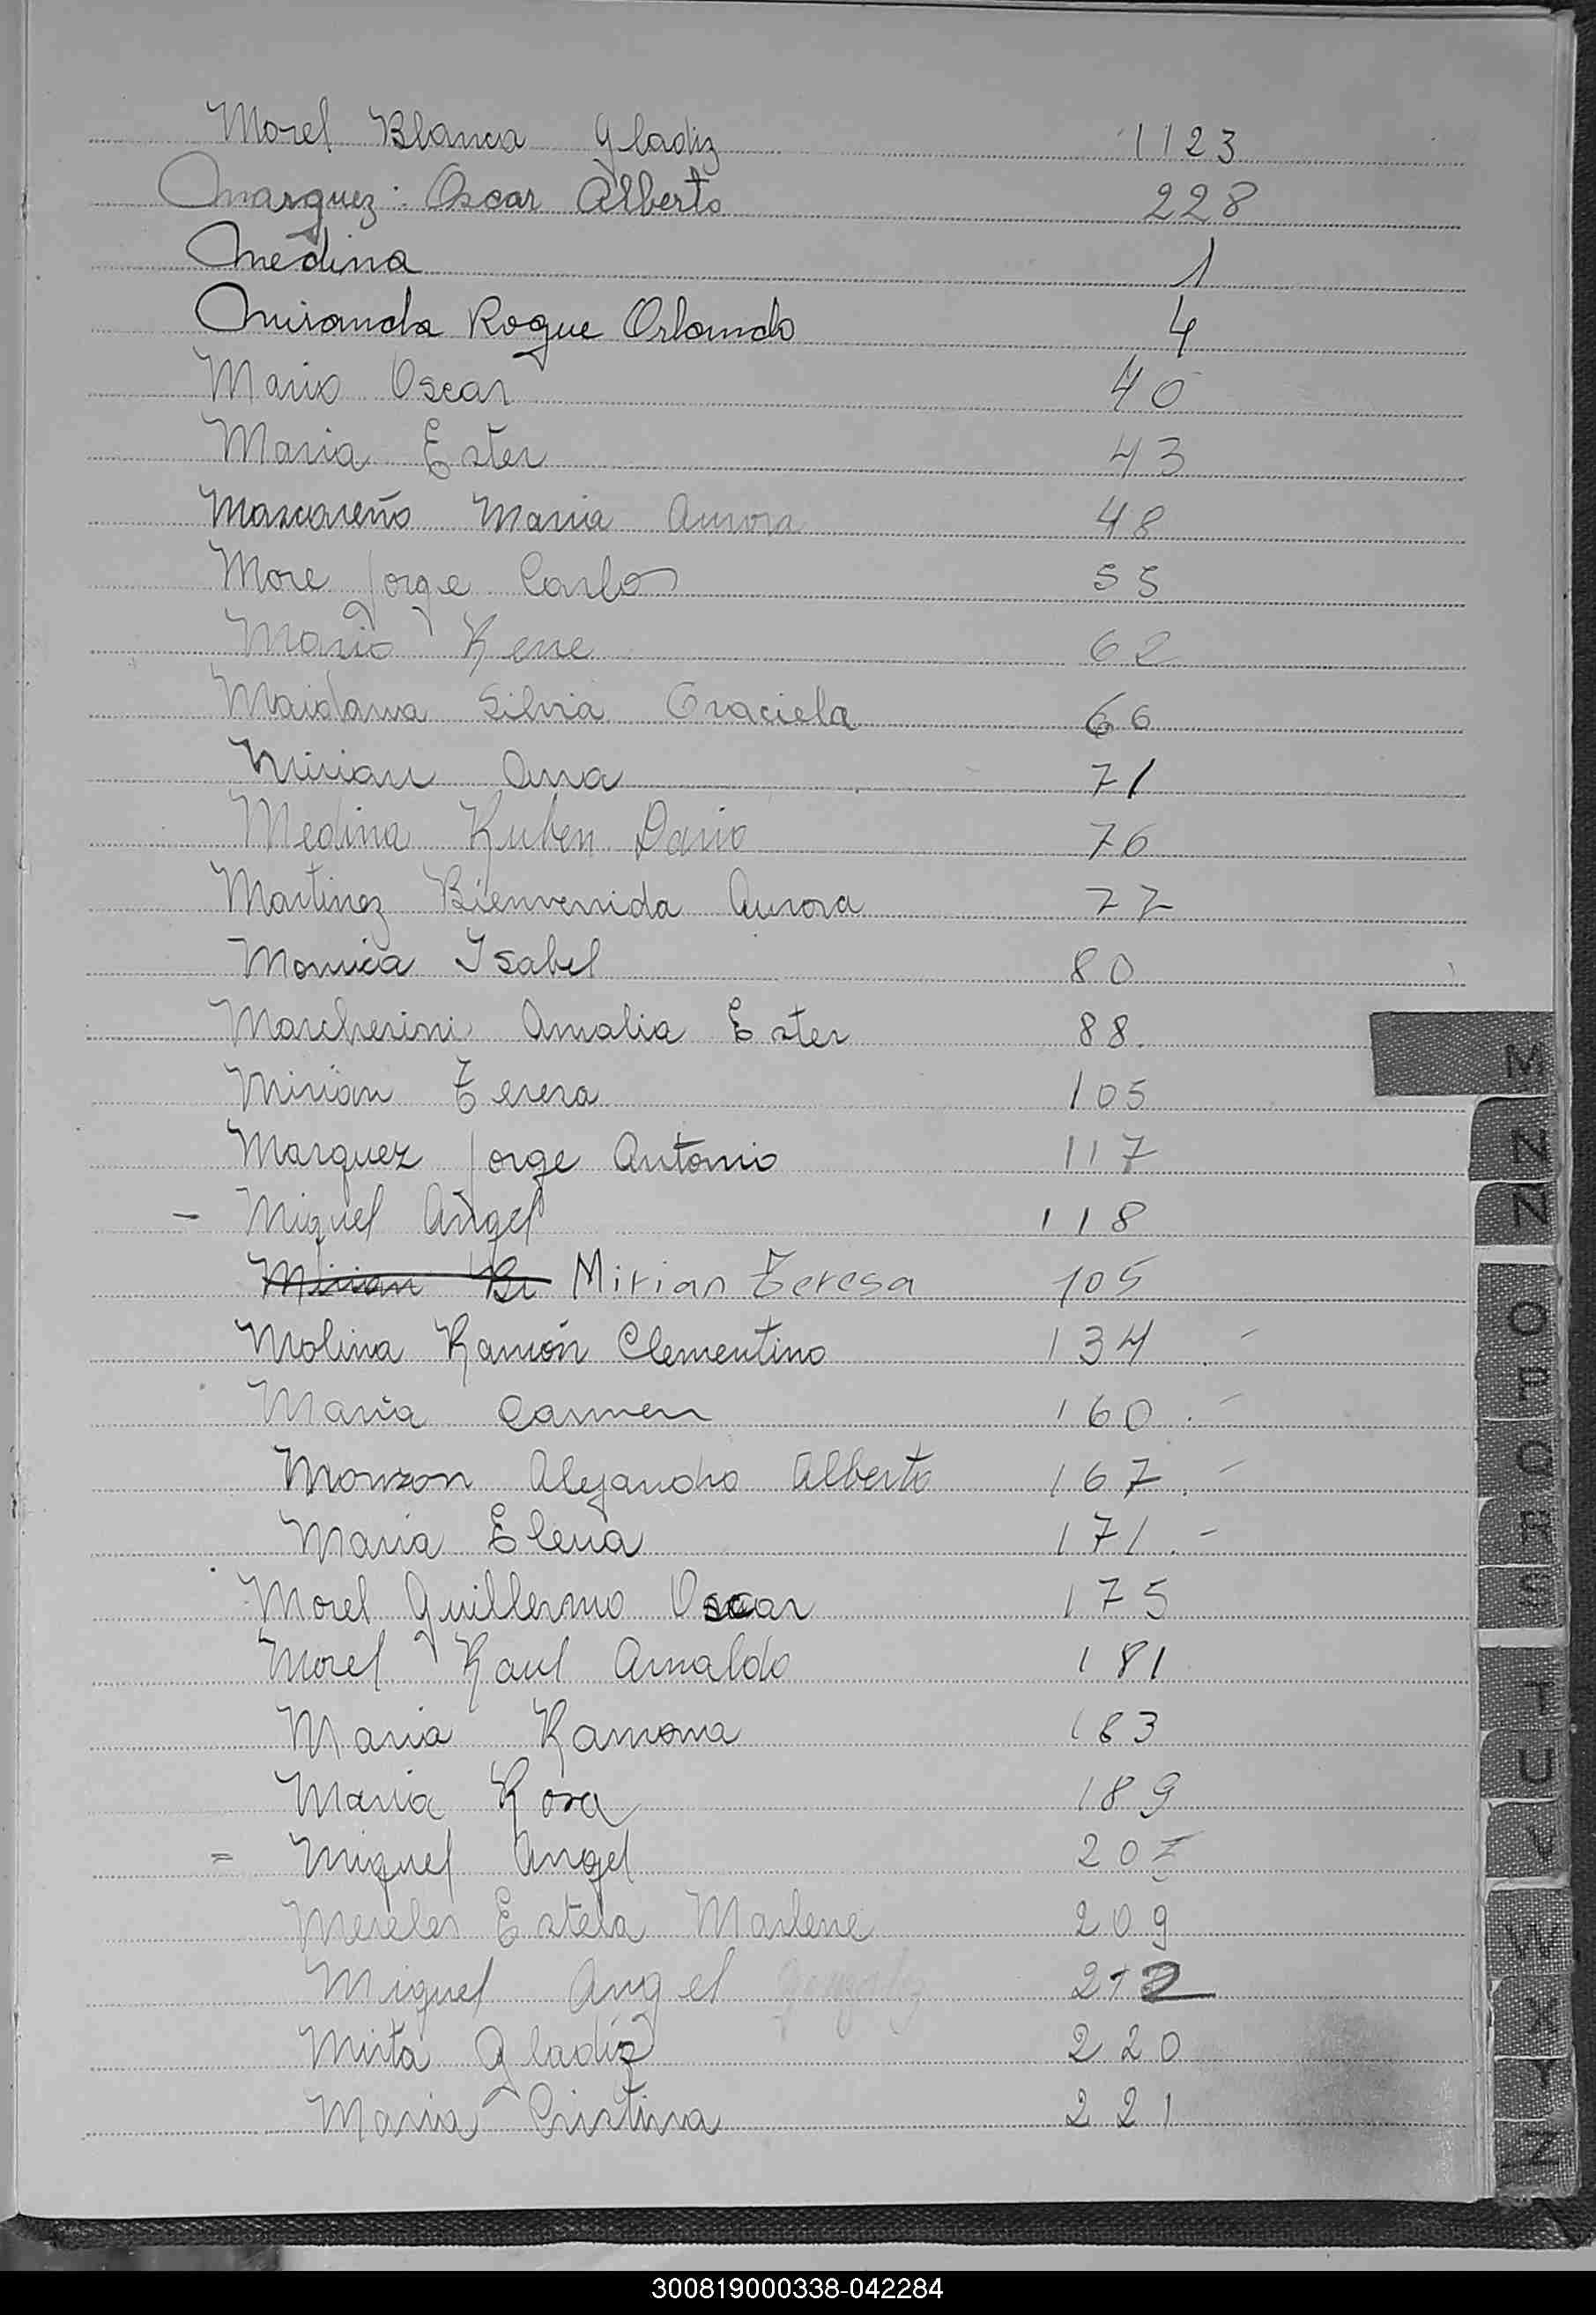 Morel Blanca Gladiz 1123
Marquez: Oscar Alberto 228
Medina 1
Miranda Roque Orlando 4
Mario Oscar 40
Maria Ester 43
Mascareño Maria Aurora 48
More Jorge Carlos 55
Mario Rene 62
Maidana Silvia Graciela 66
Mirian Ana 71
Medina Ruben Dario 76
Martinez Bienvenida Aurora 77
Monica Isabel 80
Marcherini Amalia Ester 88.
Mirian Teresa 105
Marquez Jorge Antonio 117
- Miguel Angel 118
Mirian Br Mirian Teresa 105
Molina Ramón Clementino 134 . -
Maria Carmen 160 . -
Monzon Alejandro Alberto 167 . -
Maria Elena 171 . -
Morel Guillermo Oscar 175
Morel Raul Arnaldo 181
Maria Ramona 183
Maria Rosa 189
= Miguel Angel 207
Mereles Estela Marlene 209
Miguel Angel Gonzalez 212
Mirta Gladiz 220
Maria Cristina 221
M
N
Ñ
O
P
Q
R
S
T
U
V
W
X
Y
Z
300819000338-042284